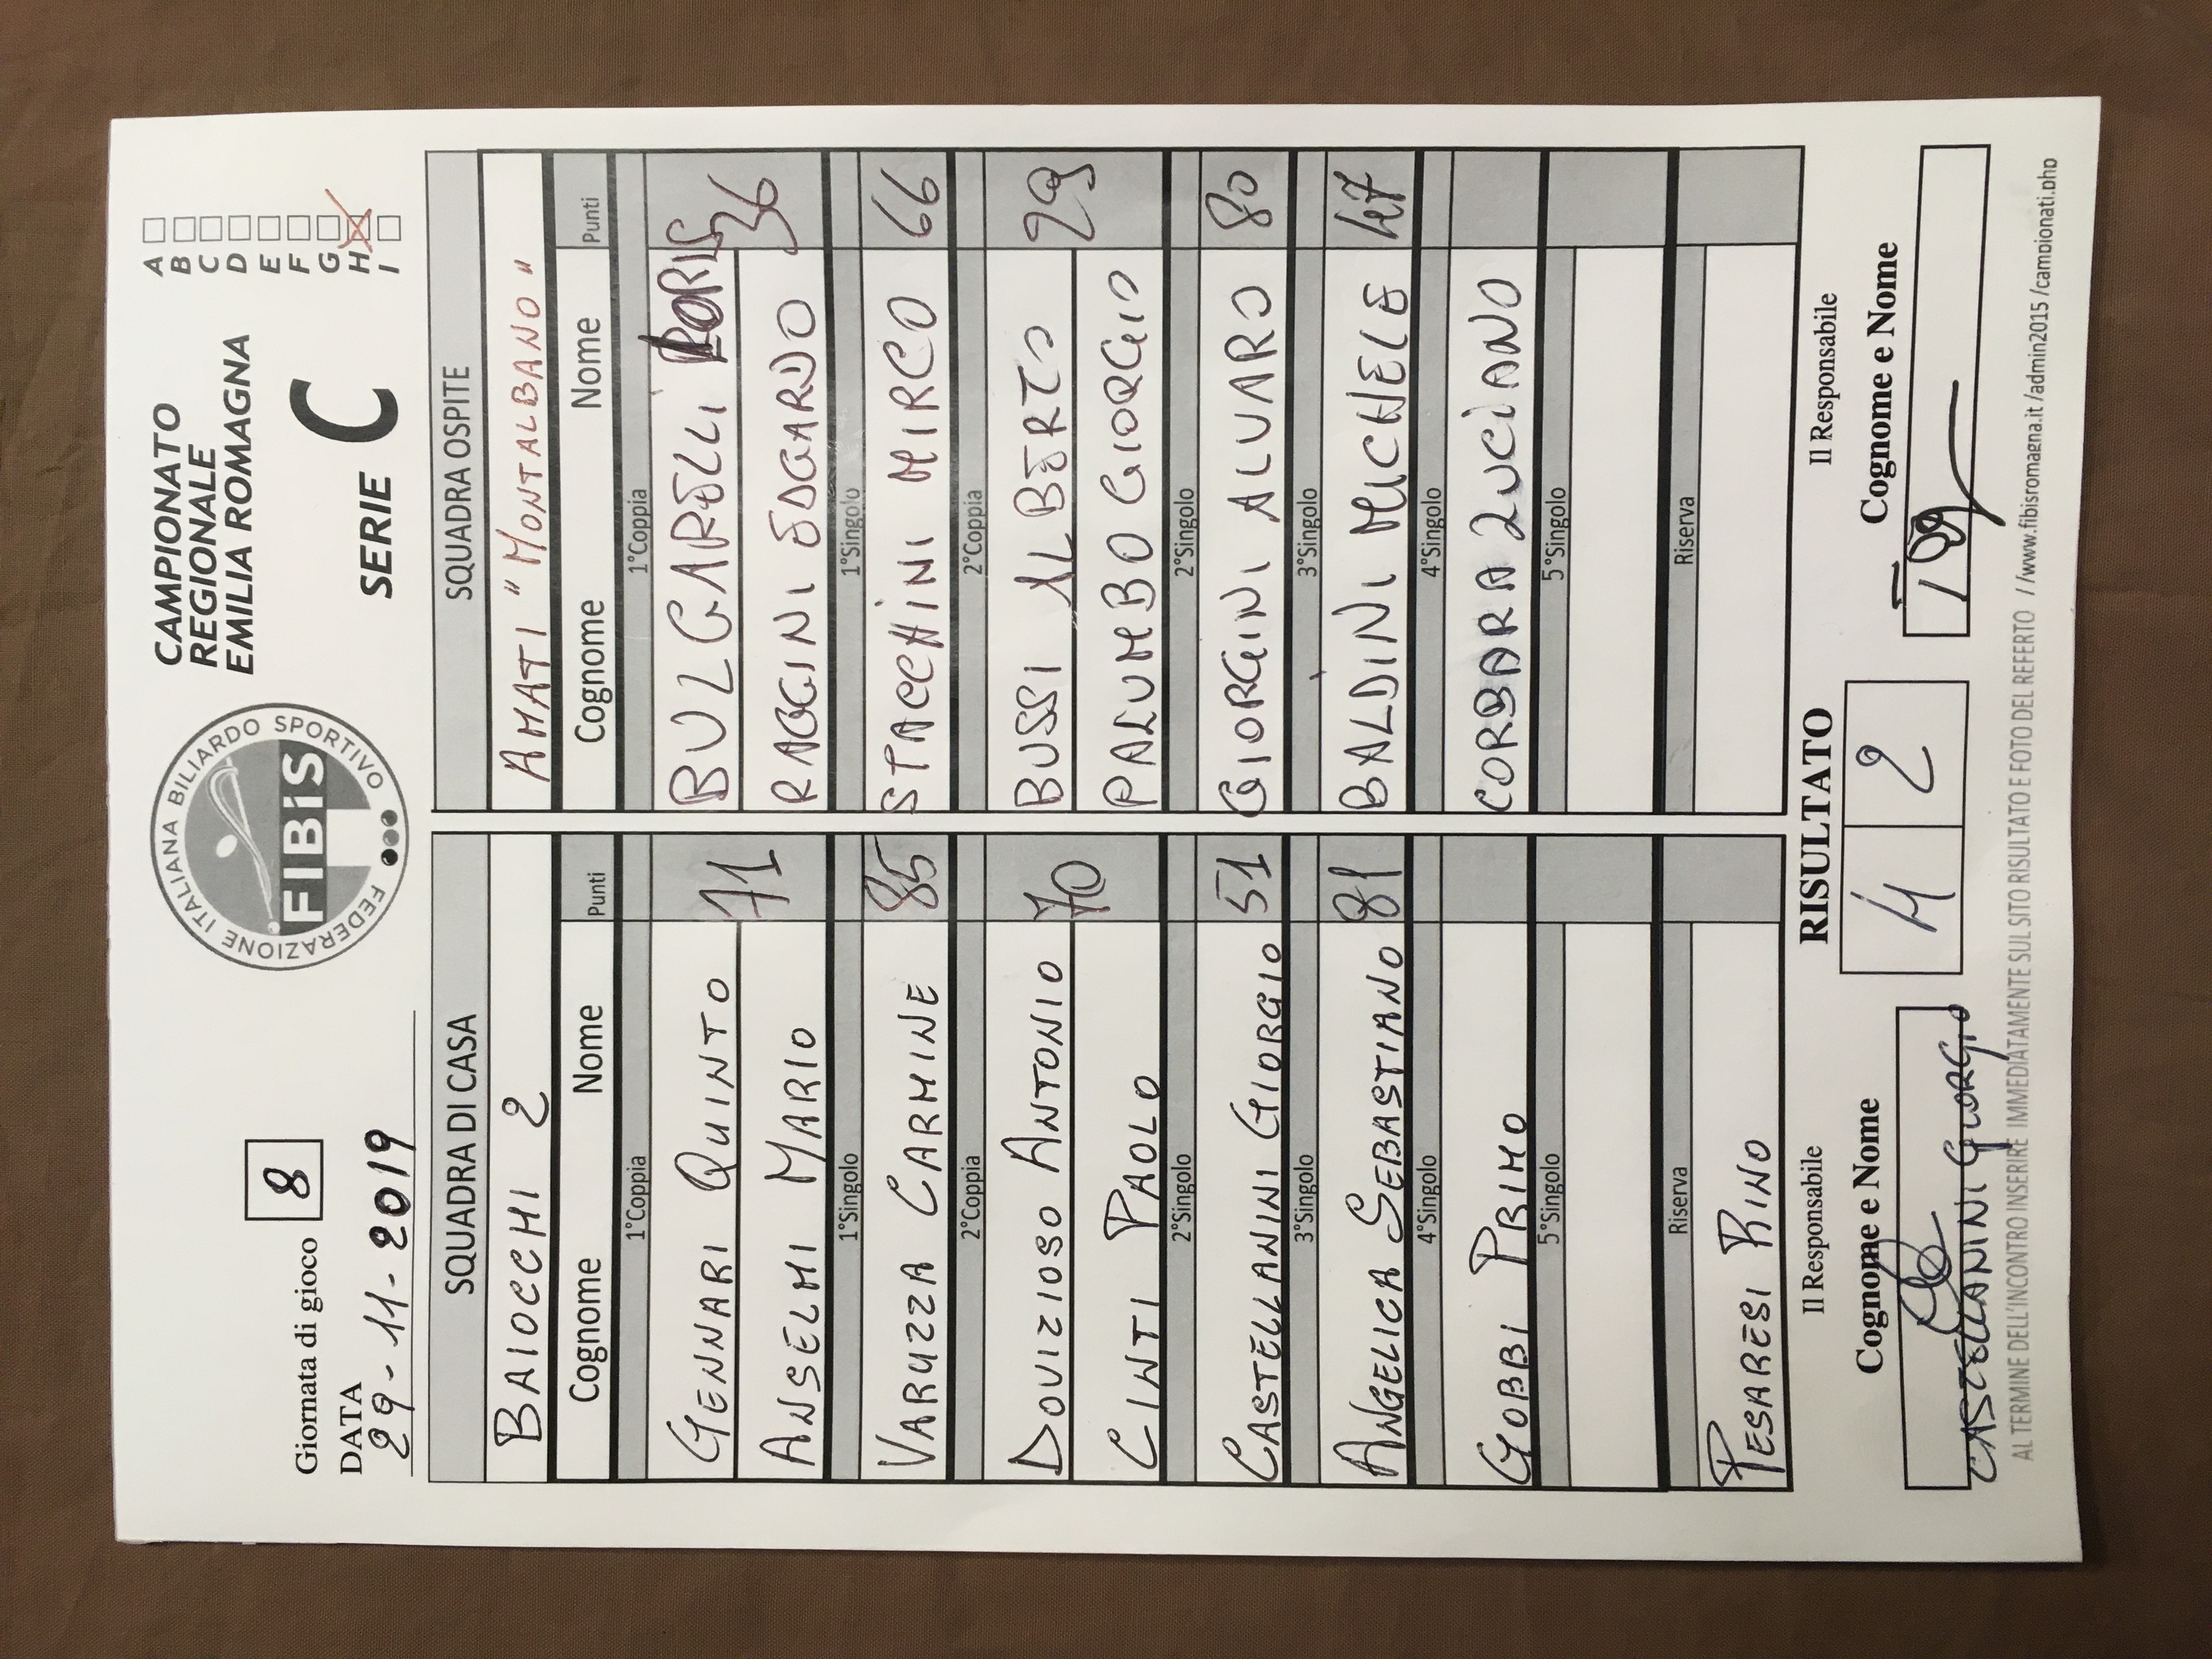 Giornata di gioco 8
DATA
29-11-2019
FEDERAZIONE ITALIANA BILIARDO SPORTIVO
FIBiS
CAMPIONATO
REGIONALE
EMILIA ROMAGNA
SERIE C
A
B
C
D
E
F
G
H
I
SQUADRA DI CASA
BAIOCCHI 2
Cognome Nome Punti
1°Coppia
GENNARI QUINTO
ANSELMI MARIO
71
1°Singolo
VARUZZA CARMINE 85
2°Coppia
DOVIZIOSO ANTONIO
CINTI PAOLO
70
2°Singolo
CASTELLANINI GIORGIO 51
3°Singolo
ANGELICA SEBASTIANO 81
4°Singolo
GOBBI PRIMO
5°Singolo
Riserva
PESARESI RINO
SQUADRA OSPITE
AMATI "MONTALBANO"
Cognome Nome Punti
1°Coppia
BULGARELLI BORIS
RAGGINI EDGARDO
36
1°Singolo
STACCHINI MIRCO 66
2°Coppia
BUSSI ALBERTO
PALUMBO GIORGIO
29
2°Singolo
GIORGINI ALVARO 80
3°Singolo
BALDINI MICHELE 47
4°Singolo
CORBARA LUCIANO
5°Singolo
Riserva
Il Responsabile
Cognome e Nome
CASTELLANINI GIORGIO
RISULTATO
4 2
Il Responsabile
Cognome e Nome
AL TERMINE DELL'INCONTRO INSERIRE IMMEDIATAMENTE SUL SITO RISULTATO E FOTO DEL REFERTO //www.fibisromagna.it /admin2015 /campionati.php